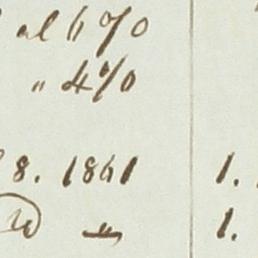 al 6%
" 4%
8. 1861 1.
" 1.